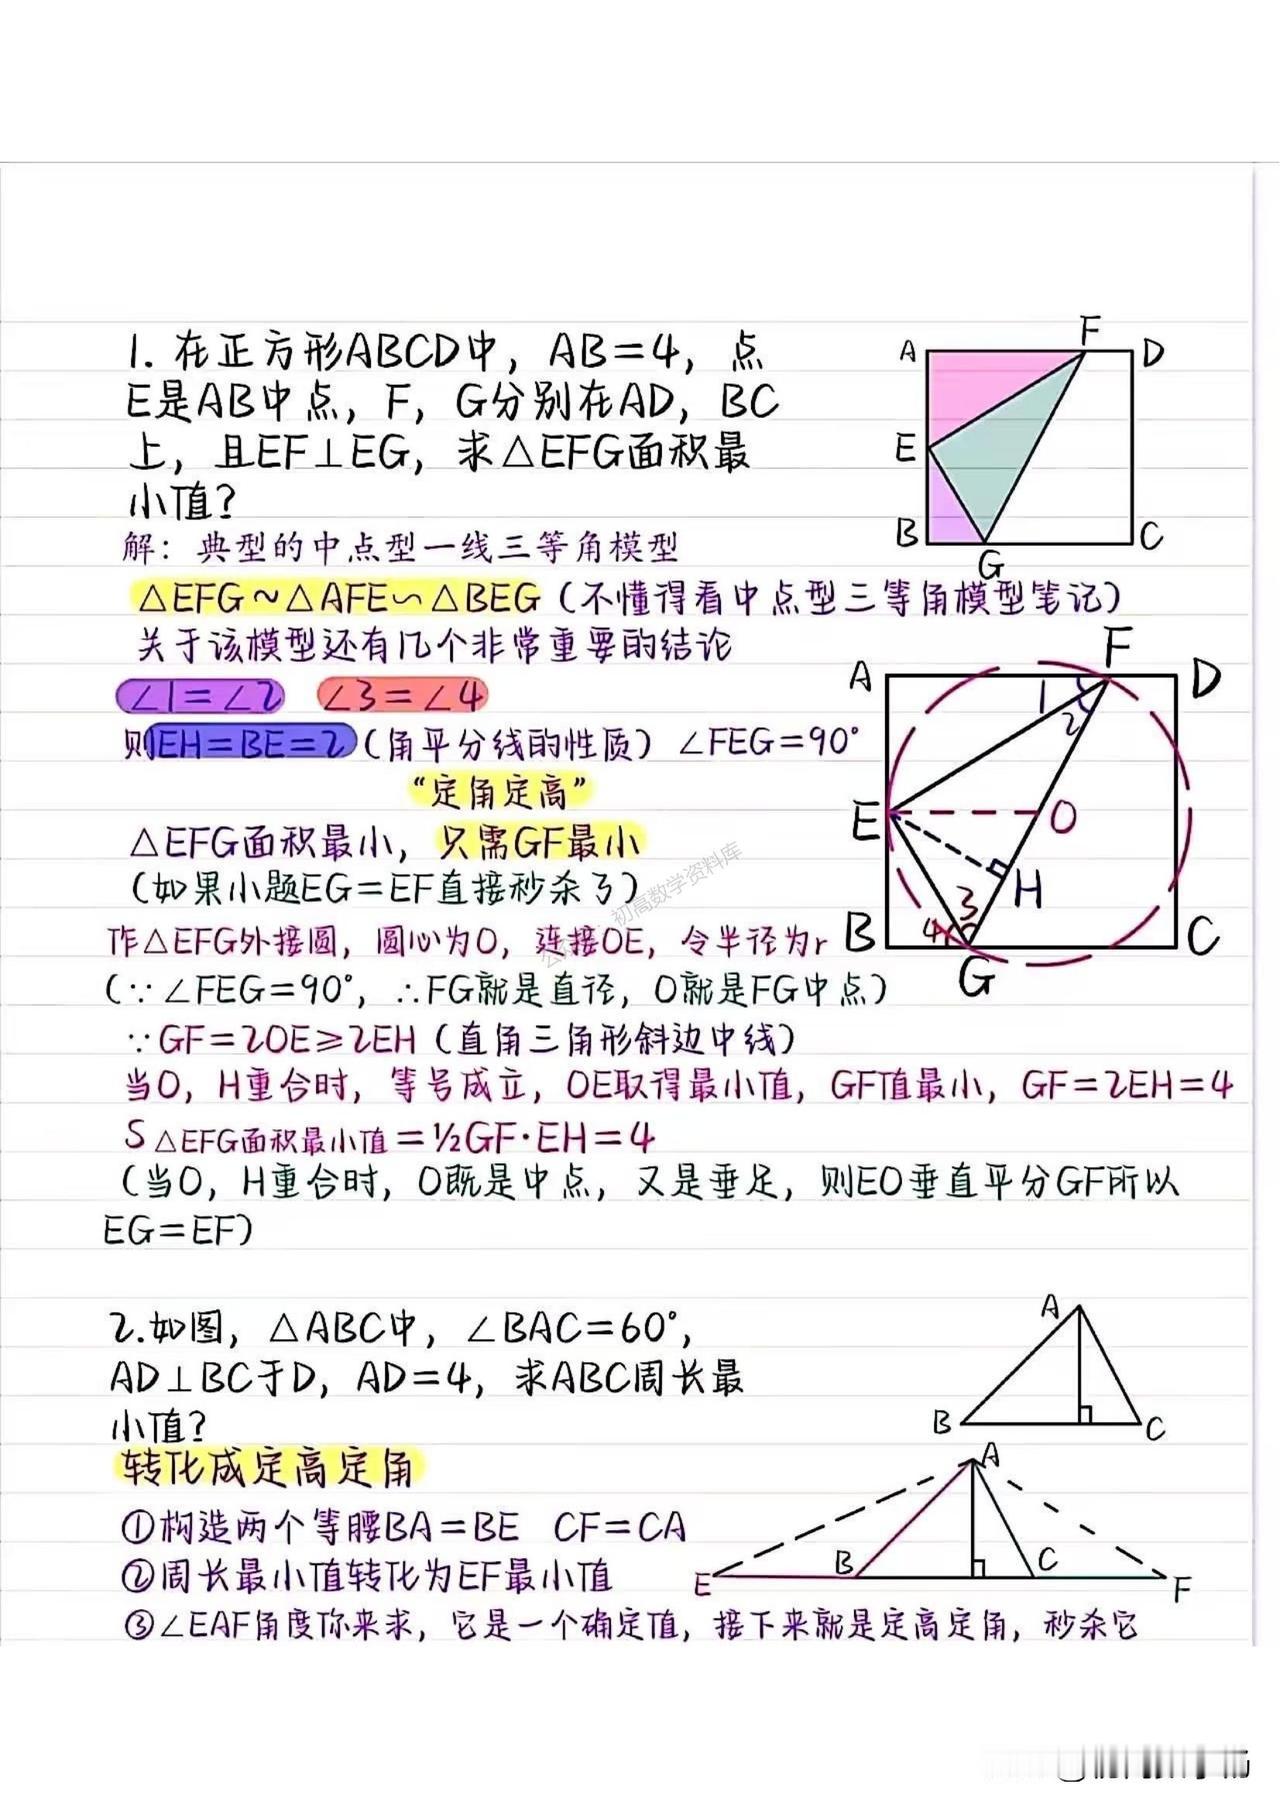 1. 在正方形ABCD中，AB=4，点
E是AB中点，F，G分别在AD，BC
上，且EF⊥EG，求△EFG面积最
小值?
A
F
D
E
B
G
C
解：典型的中点型一线三等角模型
△EFG∽△AFE∽△BEG（不懂得看中点型三等角模型笔记）
关于该模型还有几个非常重要的结论
∠1=∠2 ∠3=∠4
则EH=BE=2（角平分线的性质）∠FEG=90°
“定角定高”
△EFG面积最小，只需GF最小
（如果小题EG=EF直接秒杀了）
A
F
D
1
2
E
O
H
3
B
4
G
C
作△EFG外接圆，圆心为O，连接OE，令半径为r
（∵∠FEG=90°，∴FG就是直径，O就是FG中点）
∵GF=2OE≥2EH（直角三角形斜边中线）
当O，H重合时，等号成立，OE取得最小值，GF值最小，GF=2EH=4
S△EFG面积最小值=½GF·EH=4
（当O，H重合时，O既是中点，又是垂足，则EO垂直平分GF所以
EG=EF）
初高数学资料库
2.如图，△ABC中，∠BAC=60°，
AD⊥BC于D，AD=4，求ABC周长最
小值?
A
B
C
转化成定高定角
①构造两个等腰BA=BE CF=CA
②周长最小值转化为EF最小值
③∠EAF角度你来求，它是一个确定值，接下来就是定高定角，秒杀它
A
E
B
C
F